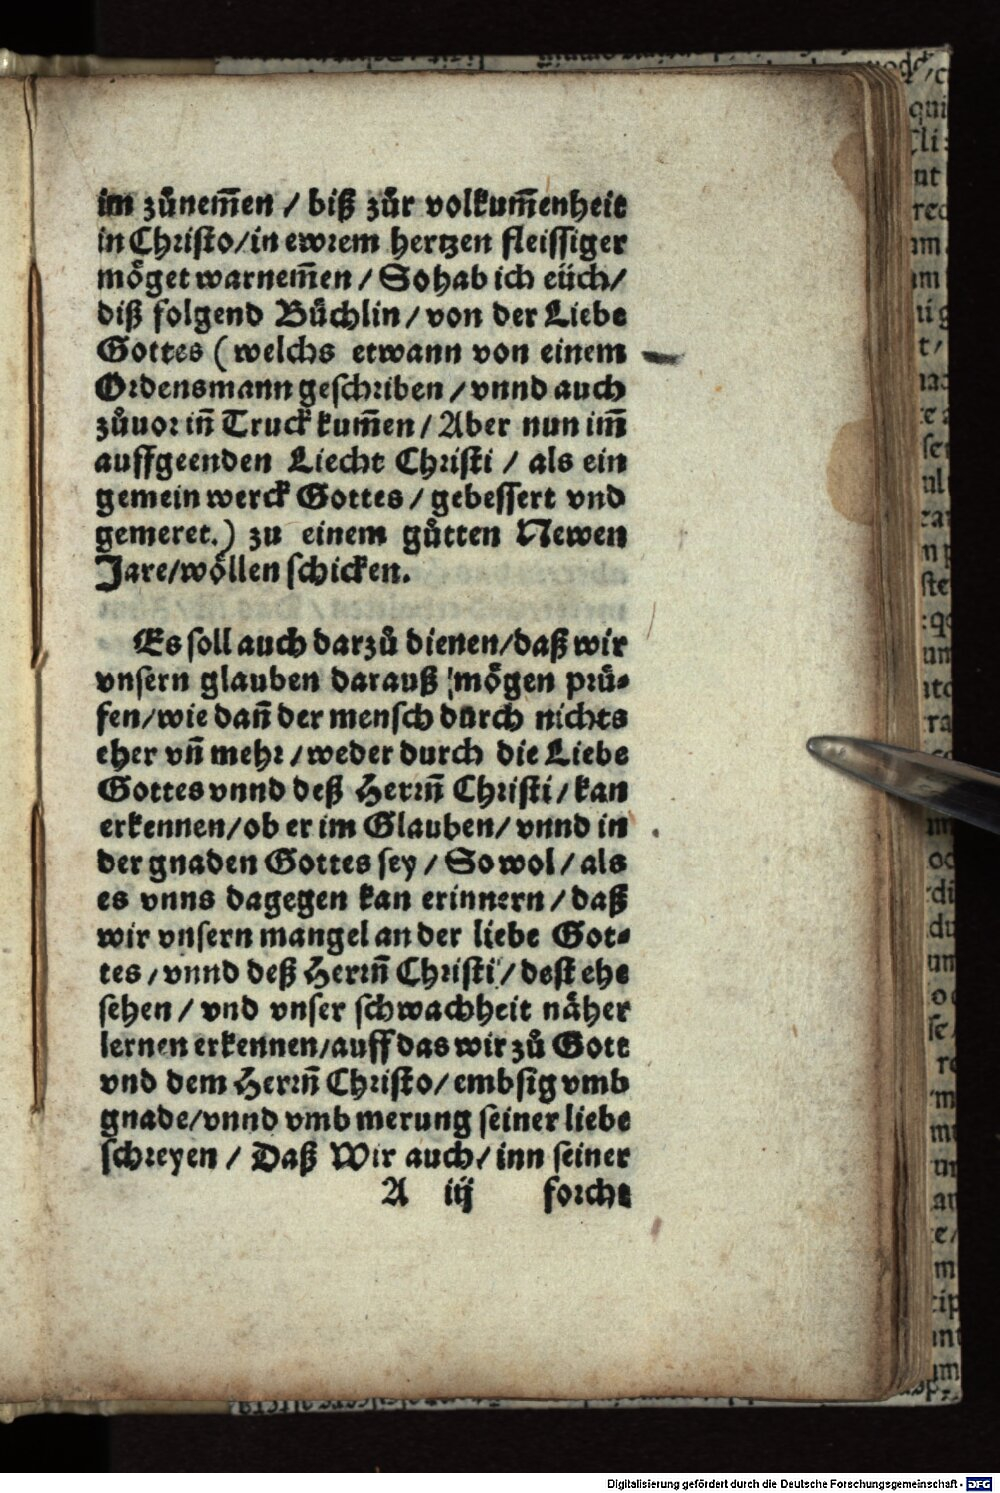 im zůnem̄en / biß zůr volkum̄enheit
in Christo/in ewrem hertzen fleissiger
möget warnem̄en / So hab ich eüch/
diß folgend Büchlin / von der Liebe
Gottes ( welchs etwann von einem
Ordensmann geschriben / vnnd auch
zůuor in̄ Truck kum̄en / Aber nun im̄
auffgeenden Liecht Christi / als ein
gemein werck Gottes / gebessert vnd
gemeret.) zu einem gůtten Newen
Jare/wöllen schicken.
Es soll auch darzů dienen/daß wir
vnsern glauben darauß mögen prü-
fen/wie dan̄ der mensch durch nichts
eher vn̄ mehr / weder durch die Liebe
Gottes vnnd deß Herrn̄ Christi / kan
erkennen/ob er im Glauben/ vnnd in
der gnaden Gottes sey / So wol / als
es vnns dagegen kan erinnern / daß
wir vnsern mangel an der liebe Got-
tes / vnnd deß Herrn̄ Christi / dest ehe
sehen / vnd vnser schwachheit näher
lernen erkennen/auff das wir zů Gott
vnd dem Herrn̄ Christo/ embsig vmb
gnade/vnnd vmb merung seiner liebe
schreyen / Daß Wir auch/ inn seiner
A iij forcht
Digitalisierung gefördert durch die Deutsche Forschungsgemeinschaft - DFG